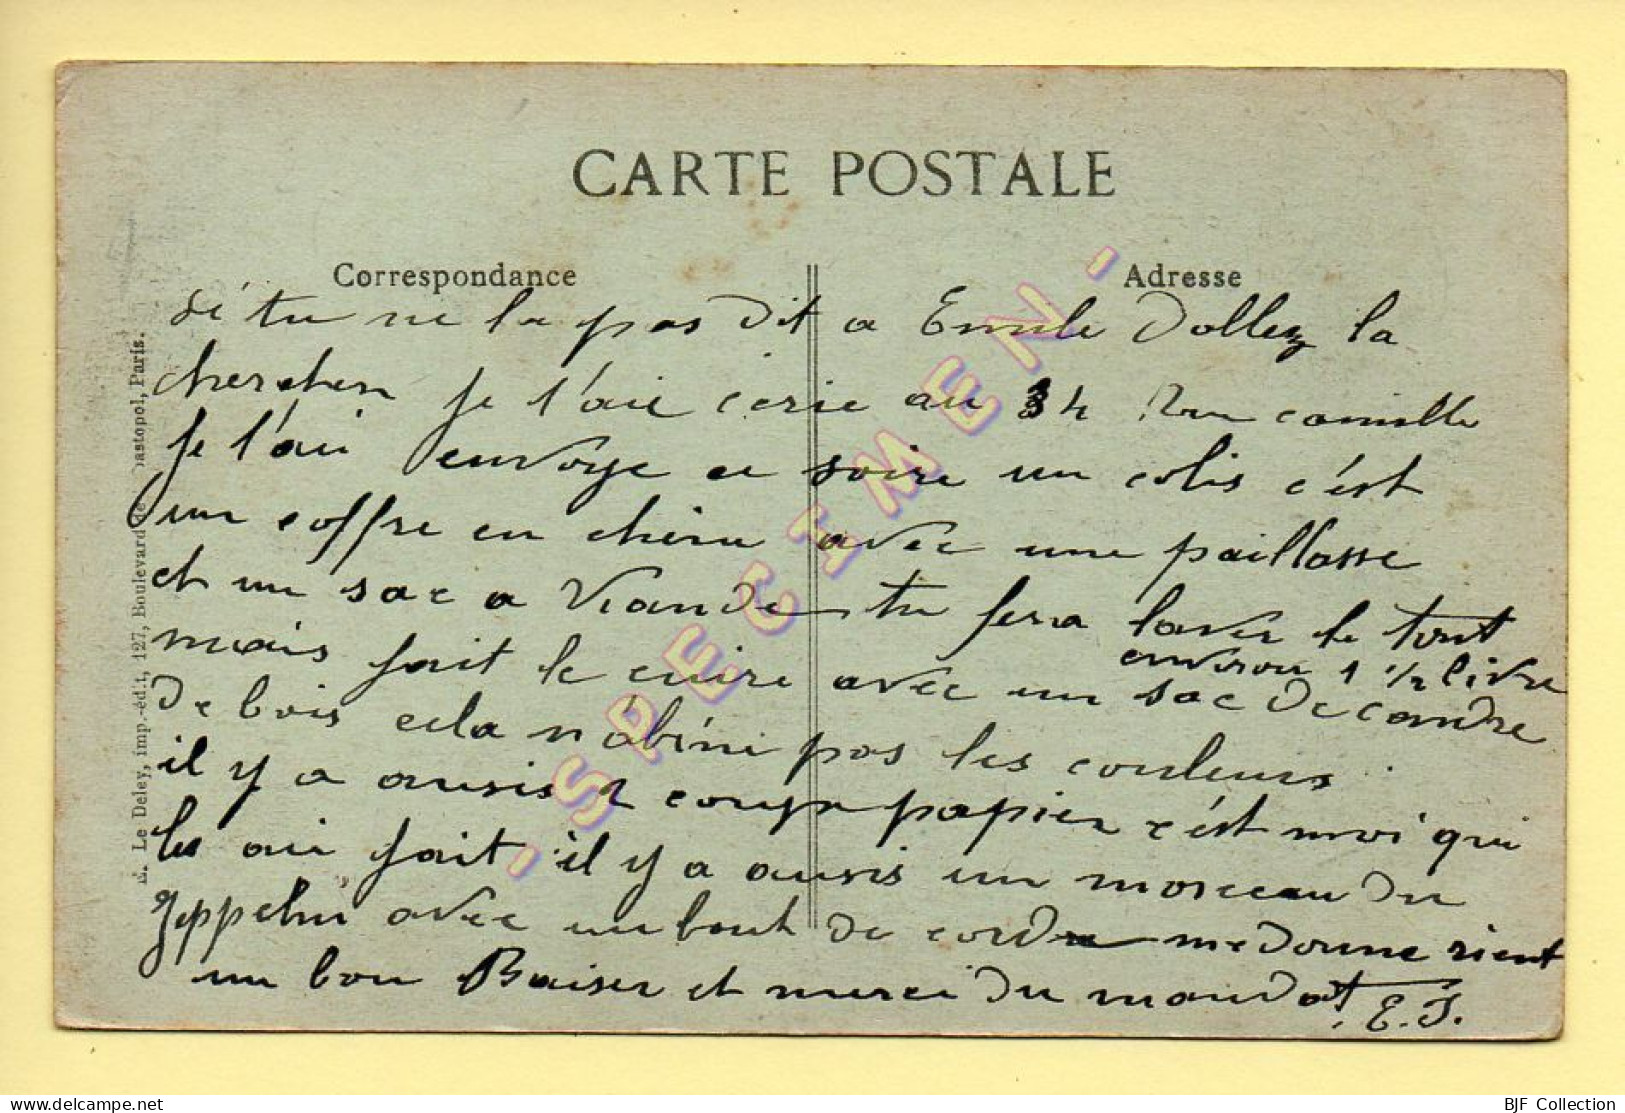 CARTE POSTALE
Correspondance
Adresse
si tu ne la pas dit a Emile Dollez la
chercher je l'aie ecrie au 34 Rue camille
je l'ai envoye ce soire un colis c'est
un coffre en chene avec une paillasse
et un sac a Viande tu fera laver le tout
mais fait le cuire avec un sac de cendre
environ 1 1/2 livre
de bois cela n'abîni pas les couleurs
il y a ausis 2 coupe papier c'est moi qui
les ai fait il y a ausis un morceau du
Zeppelin avec un bout de corde me donne rient
un bon Baiser et merci du mandat E. J.
E. Le Deley, imp.-édit, 127, Boulevard Sébastopol, Paris.
- SPECIMEN -
BJF Collection
www.delcampe.net